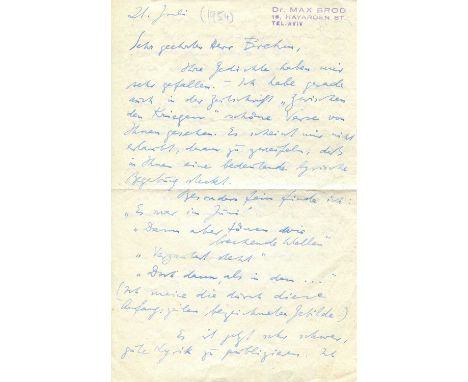 21. Juli (1954)
Dr. MAX BROD
16, HAYARDEN ST.
TEL-AVIV
Sehr geehrter Herr
Ihre Gedichte haben mir
sehr gefallen. – Ich habe gerade
auch in der Zeitschrift „Zwischen
den Kriegen“ schöne Verse von
Ihnen gesehen. Es scheint mir nicht
erlaubt, daran zu zweifeln, daß
in Ihnen eine bedeutende lyrische
Begabung steckt.
Besonders fein finde ich:
„Es war im Juni“
„Dann aber tönen wie
Wellen“
„Verzaubert steht“
„Dort dann, als in den ...“
(Ich meine die durch diese
Anfangszeilen bezeichneten Gebilde.)
Es ist jetzt sehr schwer,
gute Lyrik zu publizieren. Ich